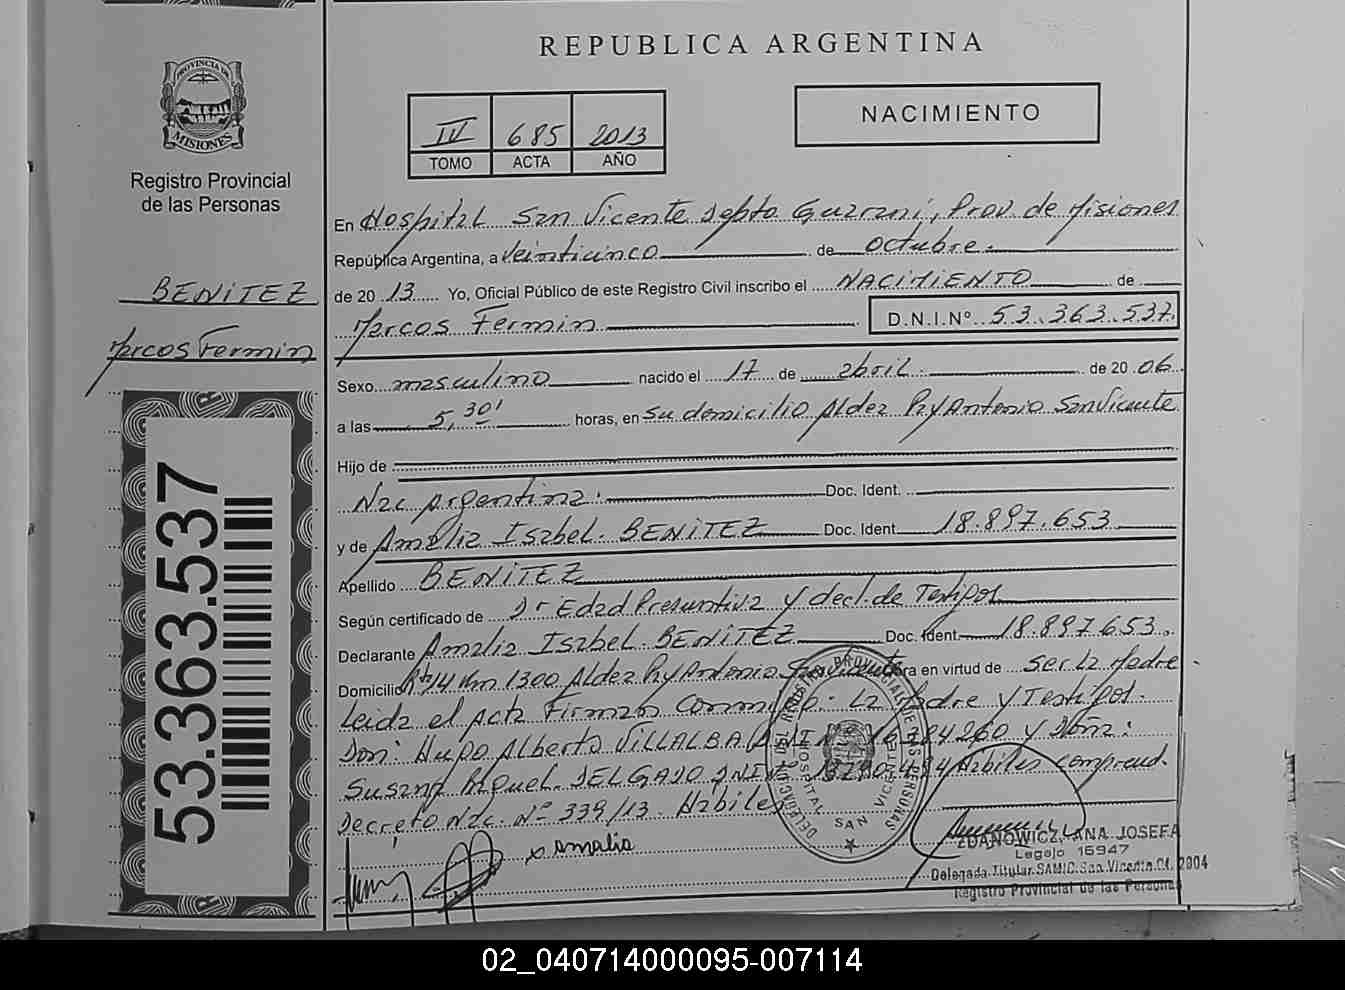 REPUBLICA ARGENTINA
PROVINCIA DE
MISIONES
Registro Provincial
de las Personas
IV 685 2013
TOMO ACTA AÑO
NACIMIENTO
BENITEZ
Marcos Fermin
53.363.537
En Hospital San Vicente Depto Guaraní, Prov. de Misiones
República Argentina, a veinticinco de octubre.
de 20 13 Yo, Oficial Público de este Registro Civil inscribo el NACIMIENTO de
Marcos Fermin D.N.I.Nº 53.363.537.
Sexo masculino nacido el 17 de abril de 20 06
a las 5,30' horas, en su domicilio Aldea Pxy Antonio San Vicente
Hijo de
Nac Argentina. Doc. Ident.
y de Amalia Isabel. BENITEZ Doc. Ident. 18.897.653
Apellido BENITEZ
Según certificado de Edad Presuntiva y decl. de Testigos
Declarante Amalia Isabel. BENITEZ Doc. Ident. 18.897.653.
Domicilio Km 1300 Aldea Pxy Antonio San Vicente en virtud de ser la Madre
Leida el Acta Firman La Madre y Testigos.
Don: Hugo Alberto VILLALBA y Doña:
Susana Raquel. DELGADO Habiles
Decreto Nac. Nº 339/13. Habiles
x amalia
SAN VICENTE
ZDANOWICZ, ANA JOSEFA
Legajo 16947
Delegada Titular SAMIC San Vicente Cl. 2804
Registro Provincial de las Personas
02_040714000095-007114